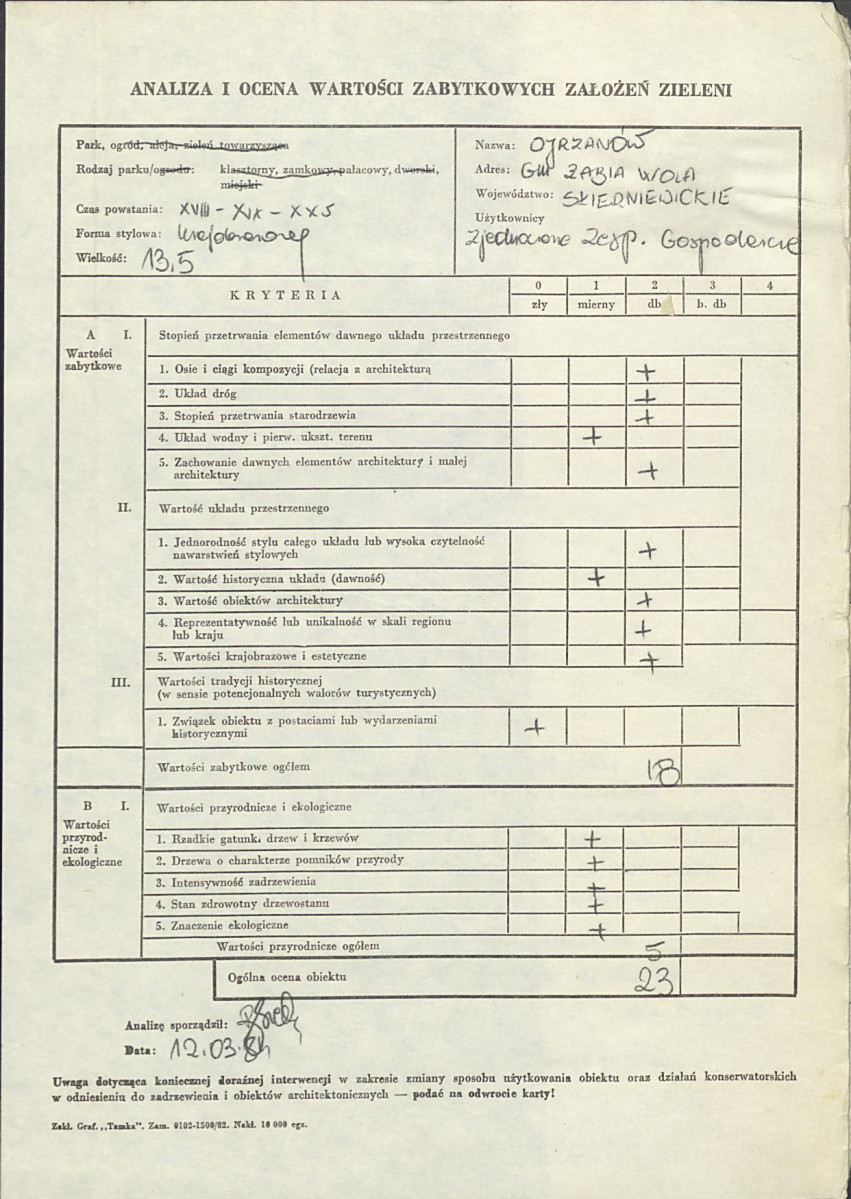 ANALIZA I OCENA WARTOŚCI ZABYTKOWYCH ZAŁOŻEŃ ZIELENI
Park, ogród, aleja, zieleń towarzysząca
Rodzaj parku/ogrodu: klasztorny, zamkowy, pałacowy, dworski,
miejski
Czas powstania: XVIII - XIX - XXS
Forma stylowa: krajobrazowa
Wielkość: 13,5
Nazwa: OJRZANÓW
Adres: GM ŻABIA WOLA
Województwo: SKIERNIEWICKIE
Użytkownicy
Zjednoczone Zesp. Gospodarcze
KRYTERIA
0 1 2 3 4
zły mierny db b. db
A I. Stopień przetrwania elementów dawnego układu przestrzennego
Wartości
zabytkowe
1. Osie i ciągi kompozycji (relacja z architekturą +
2. Układ dróg +
3. Stopień przetrwania starodrzewia +
4. Układ wodny i pierw. ukszt. terenu +
5. Zachowanie dawnych elementów architektury i małej
architektury +
II. Wartość układu przestrzennego
1. Jednorodność stylu całego układu lub wysoka czytelność
nawarstwień stylowych +
2. Wartość historyczna układu (dawność) +
3. Wartość obiektów architektury +
4. Reprezentatywność lub unikalność w skali regionu
lub kraju +
5. Wartości krajobrazowe i estetyczne +
III. Wartości tradycji historycznej
(w sensie potencjonalnych walorów turystycznych)
1. Związek obiektu z postaciami lub wydarzeniami
historycznymi +
Wartości zabytkowe ogółem 18
B I. Wartości przyrodnicze i ekologiczne
Wartości
przyrod-
nicze i
ekologiczne
1. Rzadkie gatunki drzew i krzewów +
2. Drzewa o charakterze pomników przyrody +
3. Intensywność zadrzewienia +
4. Stan zdrowotny drzewostanu +
5. Znaczenie ekologiczne +
Wartości przyrodnicze ogółem 5
Ogólna ocena obiektu 23
Analizę sporządził:
Data: 12.03.84
Uwaga dotycząca koniecznej doraźnej interwencji w zakresie zmiany sposobu użytkowania obiektu oraz działań konserwatorskich
w odniesieniu do zadrzewienia i obiektów architektonicznych — podać na odwrocie karty!
Zakł. Graf. „Tamka". Zam. 0102-1500/82. Nakł. 10 000 egz.